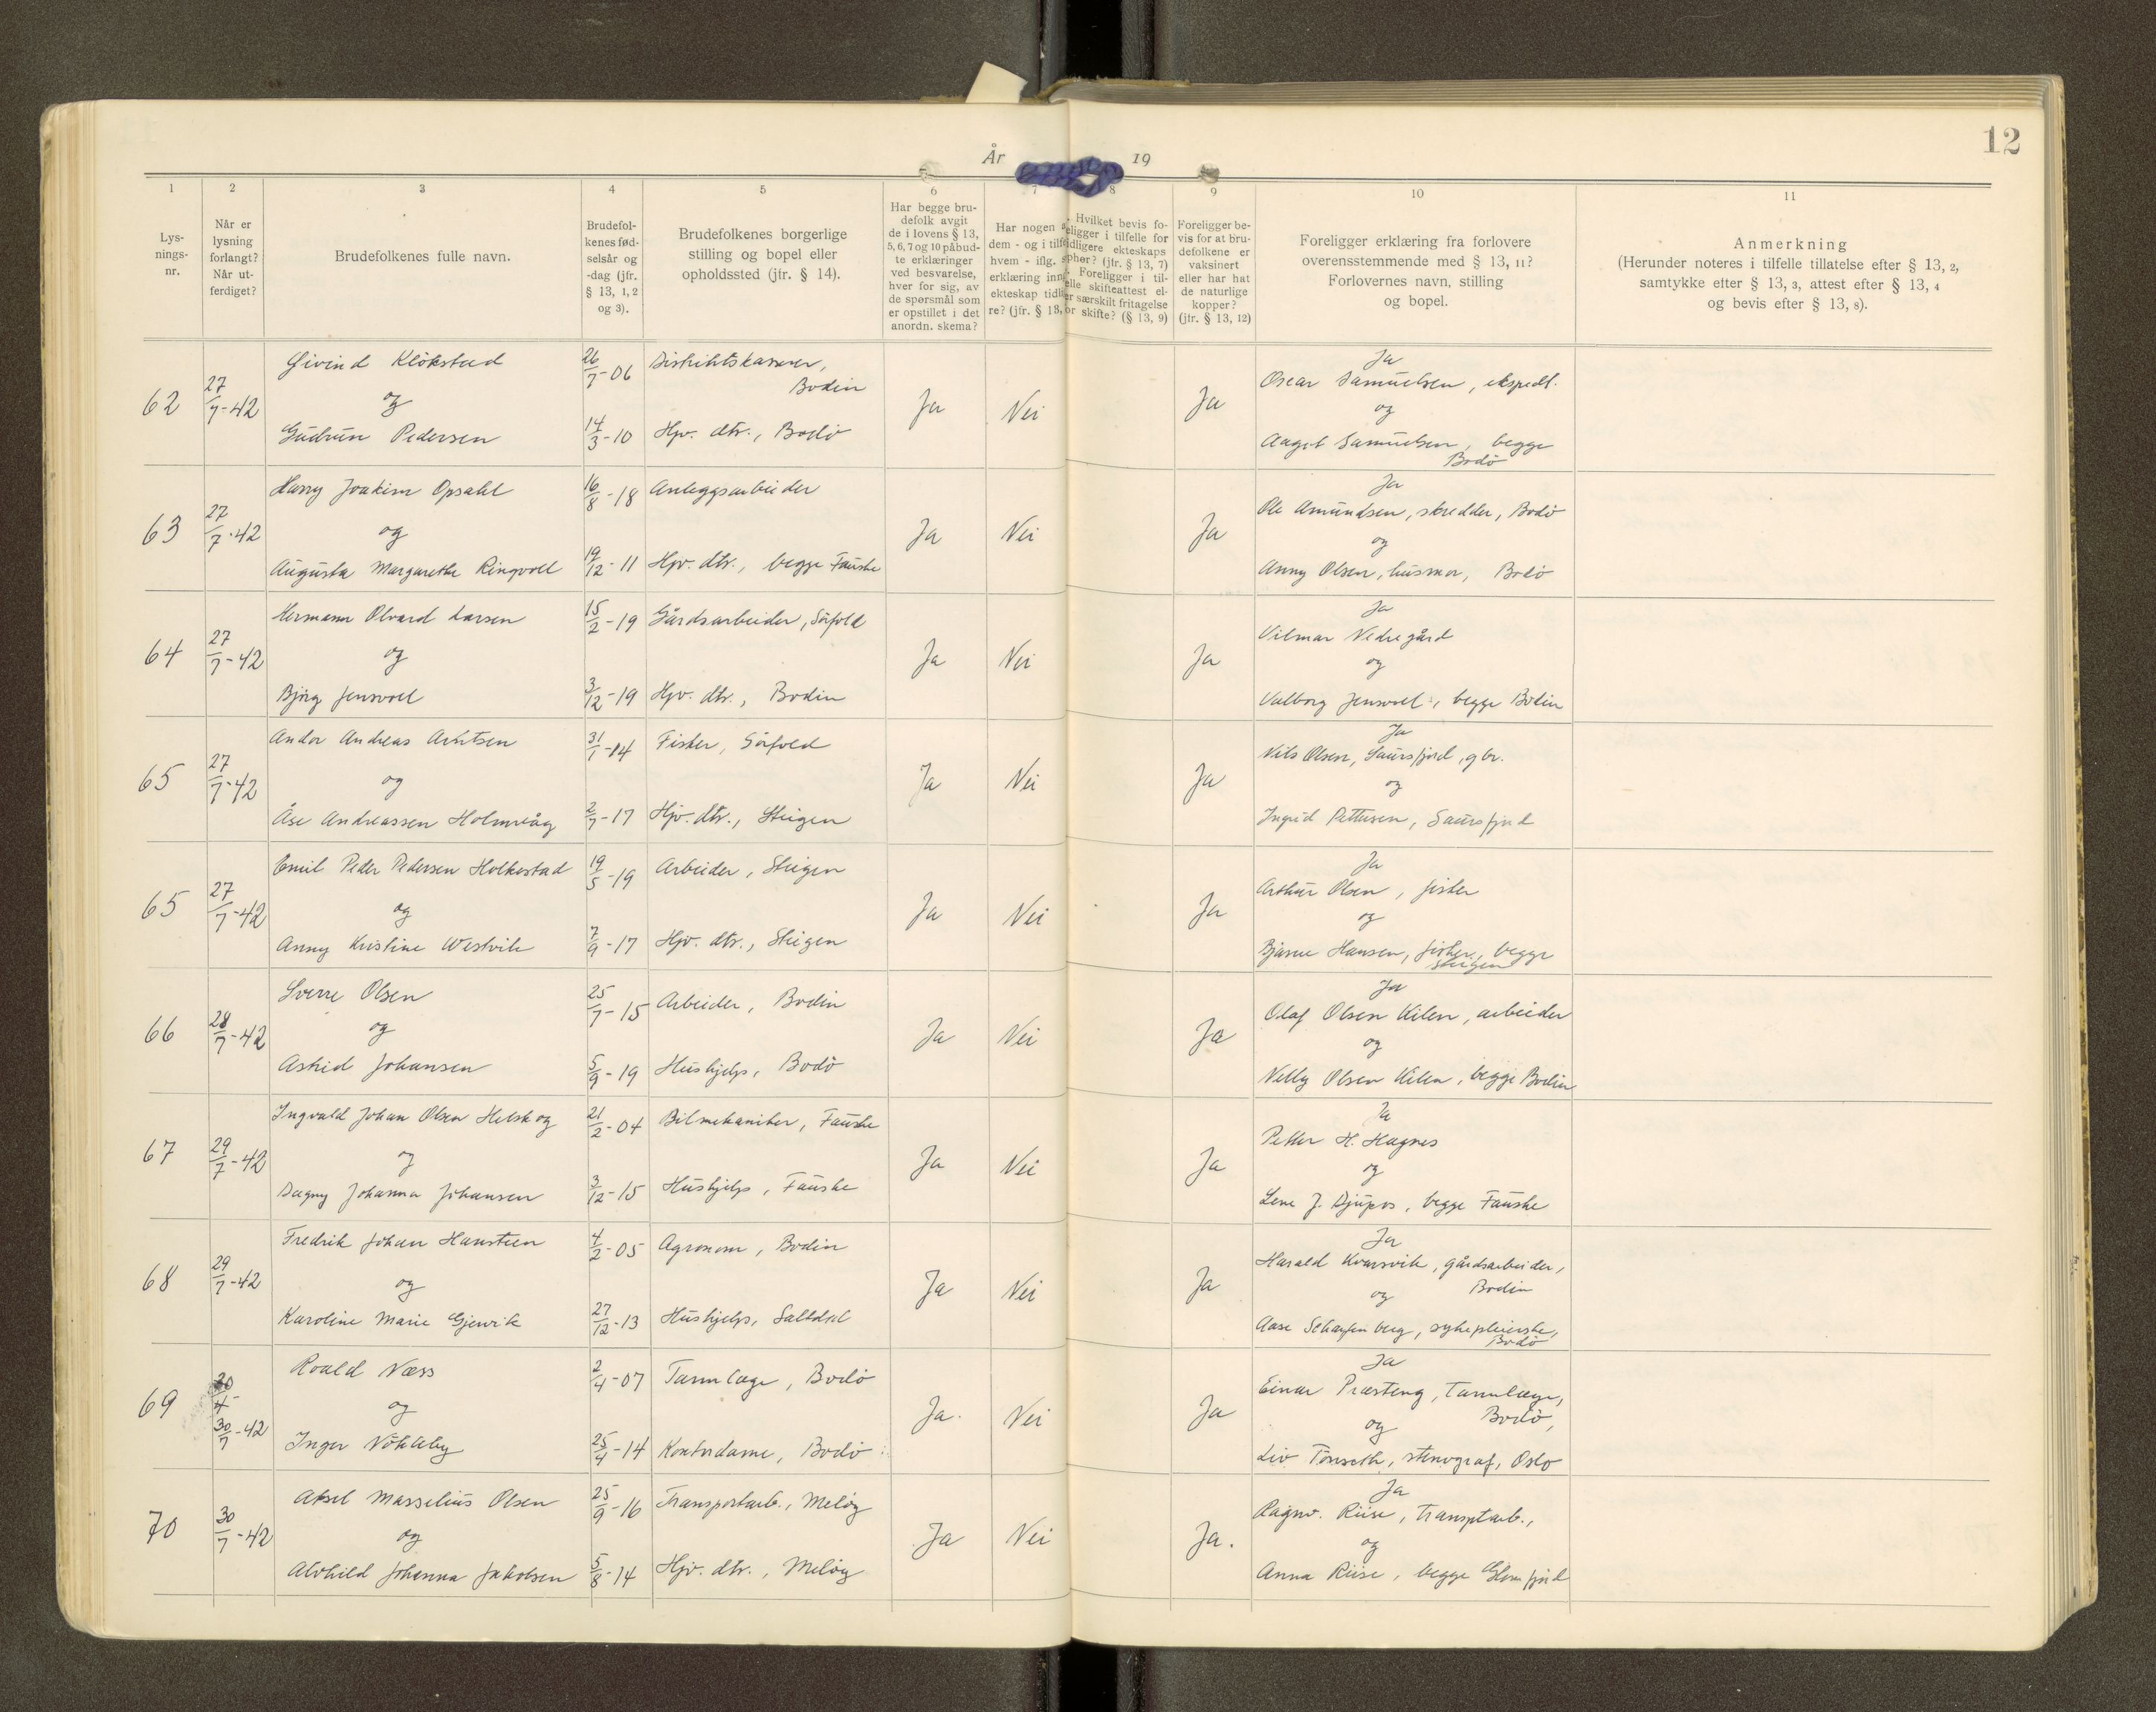 12
År 19
1
2
3
4
5
6
7
8
9
10
11
Lys-
nings-
nr.
Når er
lysning
forlangt?
Når ut-
ferdiget?
Brudefolkenes fulle navn.
Brudefol-
kenes fød-
selsår og
-dag (jfr.
§ 13, 1, 2
og 3).
Brudefolkenes borgerlige
stilling og bopel eller
opholdssted (jfr. § 14).
Har begge bru-
defolk avgit
de i lovens § 13,
5, 6, 7 og 10 påbud-
te erklæringer
ved besvarelse,
hver for sig, av
de spørsmål som
er opstillet i det
anordn. skema?
Har nogen
dem - og i tilf
hvem - iflg.
erklæring inn
ekteskap tidli
re? (jfr. § 13,
Hvilket bevis fo-
eligger i tilfelle for
idligere ekteskaps
ophør? (jfr. § 13, 7)
Foreligger i til-
elle skifteattest el-
er særskilt fritagelse
or skifte? (§ 13, 9)
Foreligger be-
vis for at bru-
defolkene er
vaksinert
eller har hat
de naturlige
kopper?
(jfr. § 13, 12)
Foreligger erklæring fra forlovere
overensstemmende med § 13, 11?
Forlovernes navn, stilling
og bopel.
Anmerkning
(Herunder noteres i tilfelle tillatelse efter § 13, 2,
samtykke efter § 13, 3, attest efter § 13, 4
og bevis efter § 13, 8).
62 27/7-42 Ja Nei Ja
Eivind Klökstad 26/7-06 Distriktskasserer,
Bodin
og
Gudrun Pedersen 14/3-10 Hjv. dtr., Bodö
Ja
Oscar Samuelsen, ekspedt.
og
Aagot Samuelsen, begge
Bodö
63 27/7-42 Ja Nei Ja
Harry Joakim Opsahl 16/8-18 Anleggsarbeider
og
Augusta Margarethe Ringvoll 19/12-11 Hjv. dtr., begge Fauske
Ja
Ole Amundsen, skredder, Bodö
og
Anny Olsen, husmor, Bodö
64 27/7-42 Ja Nei Ja
Hermann Olvard Larsen 15/2-19 Gårdsarbeider, Sörfold
og
Björg Jensvoll 3/12-19 Hjv. dtr., Bodin
Ja
Vilmar Nedregård
og
Valborg Jensvoll, begge Bodin
65 27/7-42 Ja Nei Ja
Andor Andreas Arntsen 31/1-14 Fisker, Sörfold
og
Åse Andreassen Holmvåg 2/7-17 Hjv. dtr., Steigen
Ja
Nils Olsen, Saursfjord, gbr.
og
Ingrid Pettersen, Saursfjord
65 27/7-42 Ja Nei Ja
Emil Peder Pedersen Holkestad 19/5-19 Arbeider, Steigen
og
Anny Kristine Westvik 7/9-17 Hjv. dtr., Steigen
Ja
Arthur Olsen, fisker
og
Bjarne Hansen, fisker, begge
Steigen
66 28/7-42 Ja Nei Ja
Sverre Olsen 25/7-15 Arbeider, Bodin
og
Astrid Johansen 5/9-19 Hushjelp, Bodö
Ja
Olaf Olsen Kilen, arbeider
og
Nelly Olsen Kilen, begge Bodin
67 29/7-42 Ja Nei Ja
Ingvald Johan Olsen Helskog 21/2-04 Bilmekaniker, Fauske
og
Dagny Johanna Johansen 3/12-15 Hushjelp, Fauske
Ja
Petter H. Hagnes
og
Lene J. Djupos, begge Fauske
68 29/7-42 Ja Nei Ja
Fredrik Johan Hansteen 4/2-05 Agronom, Bodin
og
Karoline Marie Gjenvik 27/12-13 Hushjelp, Saltdal
Ja
Harald Kvarsvik, gårdsarbeider,
Bodin
og
Aase Scharfenberg, sykepleierske,
Bodö
69 30/4- 30/7-42 Ja. Nei Ja
Roald Næss 2/4-07 Tannlæge, Bodö
og
Inger Nökleby 25/4-14 Kontordame, Bodö
Ja
Einar Præsteng, Tannlæge,
Bodö,
og
Liv Tönseth, stenograf, Oslo
70 30/7-42 Ja Nei Ja.
Aksel Masselius Olsen 25/9-16 Transportarb., Melöy
og
Alvhild Johanna Jakobsen 5/8-14 Hjv. dtr., Melöy
Ja
Ragnv. Riise, transptarb.,
og
Anna Riise, begge Glomfjord